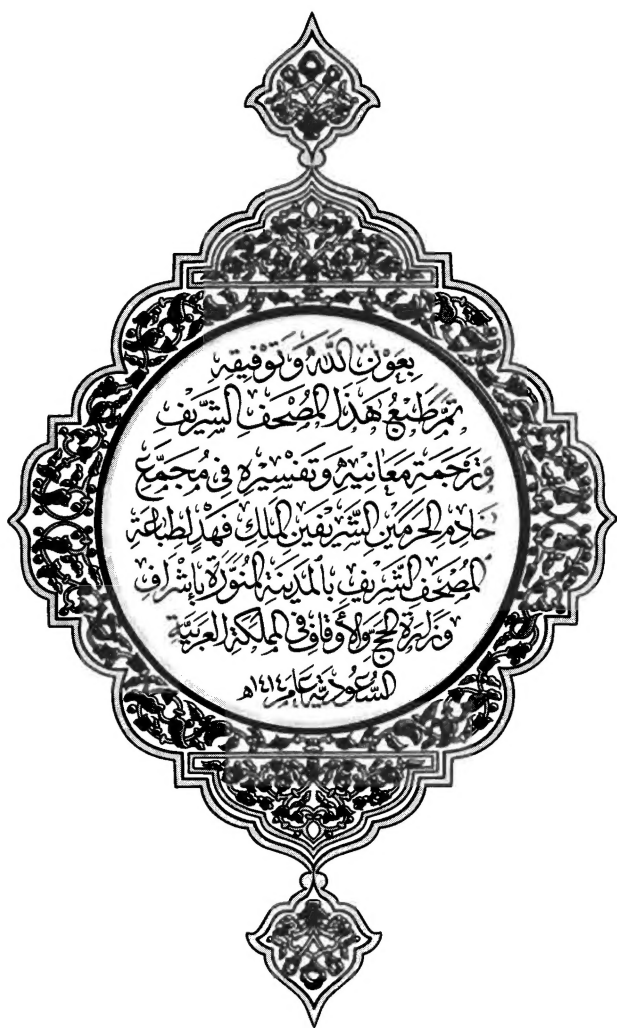 بِعَوْنِ اللَّهِ وَتَوْفِيقِهِ
تَمَّ طَبْعُ هَذَا الْمُصْحَفِ الشَّرِيفِ
وَتَرْجَمَةِ مَعَانِيهِ وَتَفْسِيرِهِ فِي مُجَمَّعِ
خَادِمِ الْحَرَمَيْنِ الشَّرِيفَيْنِ الْمَلِكِ فَهْدٍ لِطِبَاعَةِ
الْمُصْحَفِ الشَّرِيفِ بِالْمَدِينَةِ الْمُنَوَّرَةِ بِإِشْرَافِ
وِزَارَةِ الْحَجِّ وَالْأَوْقَافِ فِي الْمَمْلَكَةِ الْعَرَبِيَّةِ
السُّعُودِيَّةِ عَامَ ١٤١٤هـ